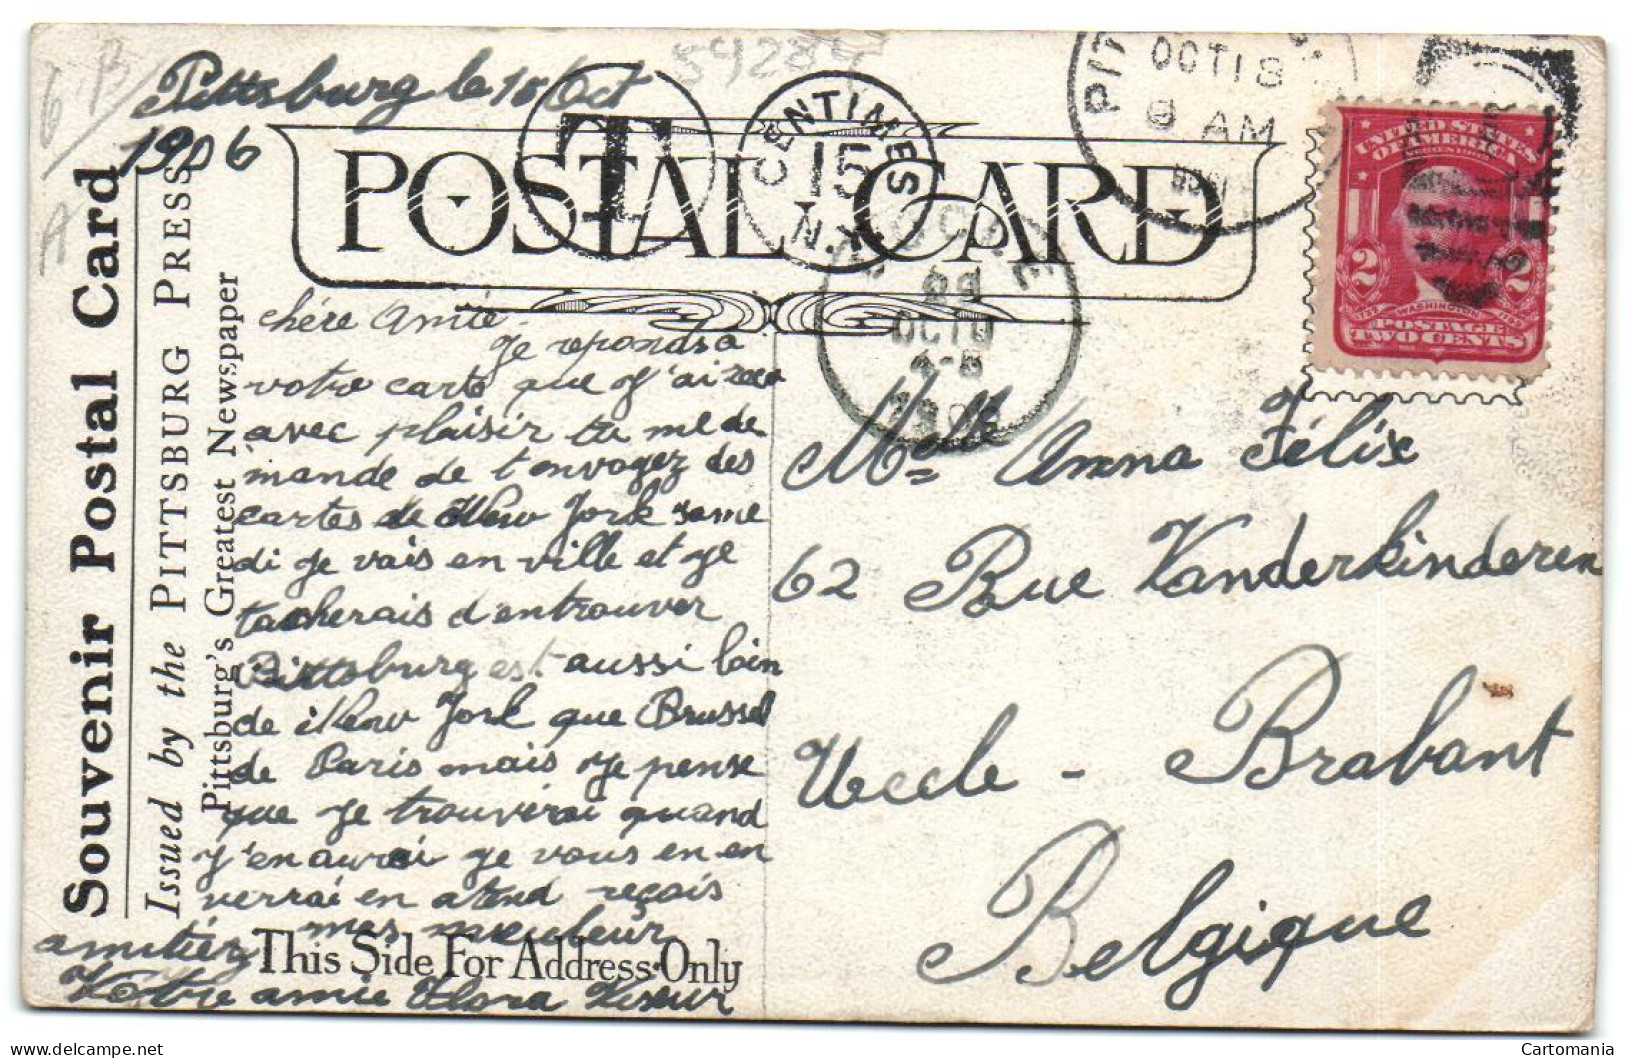 59284
Pittsburg le 18 Oct
1906
POSTAL CARD
T
CENTIMES
15
N.Y.
OCT 18
9 AM
OCT
4-5
UNITED STATES
OF AMERICA
2 2
WASHINGTON
POSTAGE
TWO CENTS
Souvenir Postal Card
Issued by the PITTSBURG PRESS
Pittsburg's Greatest Newspaper
chére Amie
Je reponds a
votre carte que j'ai recu
avec plaisir tu me de
mande de t'envoyez des
cartes de New York same
di je vais en ville et je
tacherais d'entrouver
Pittsburg est aussi loin
de New York que Brussel
de Paris mais je pense
que je trouverai quand
j'en aurai je vous en en
verrai en atend reçois
mes meuleur
amitiéz
Votre amie Flora
This Side For Address Only
Melle Anna Félix
62 Rue Vanderkinderen
Uccle - Brabant
Belgique
Cartomania